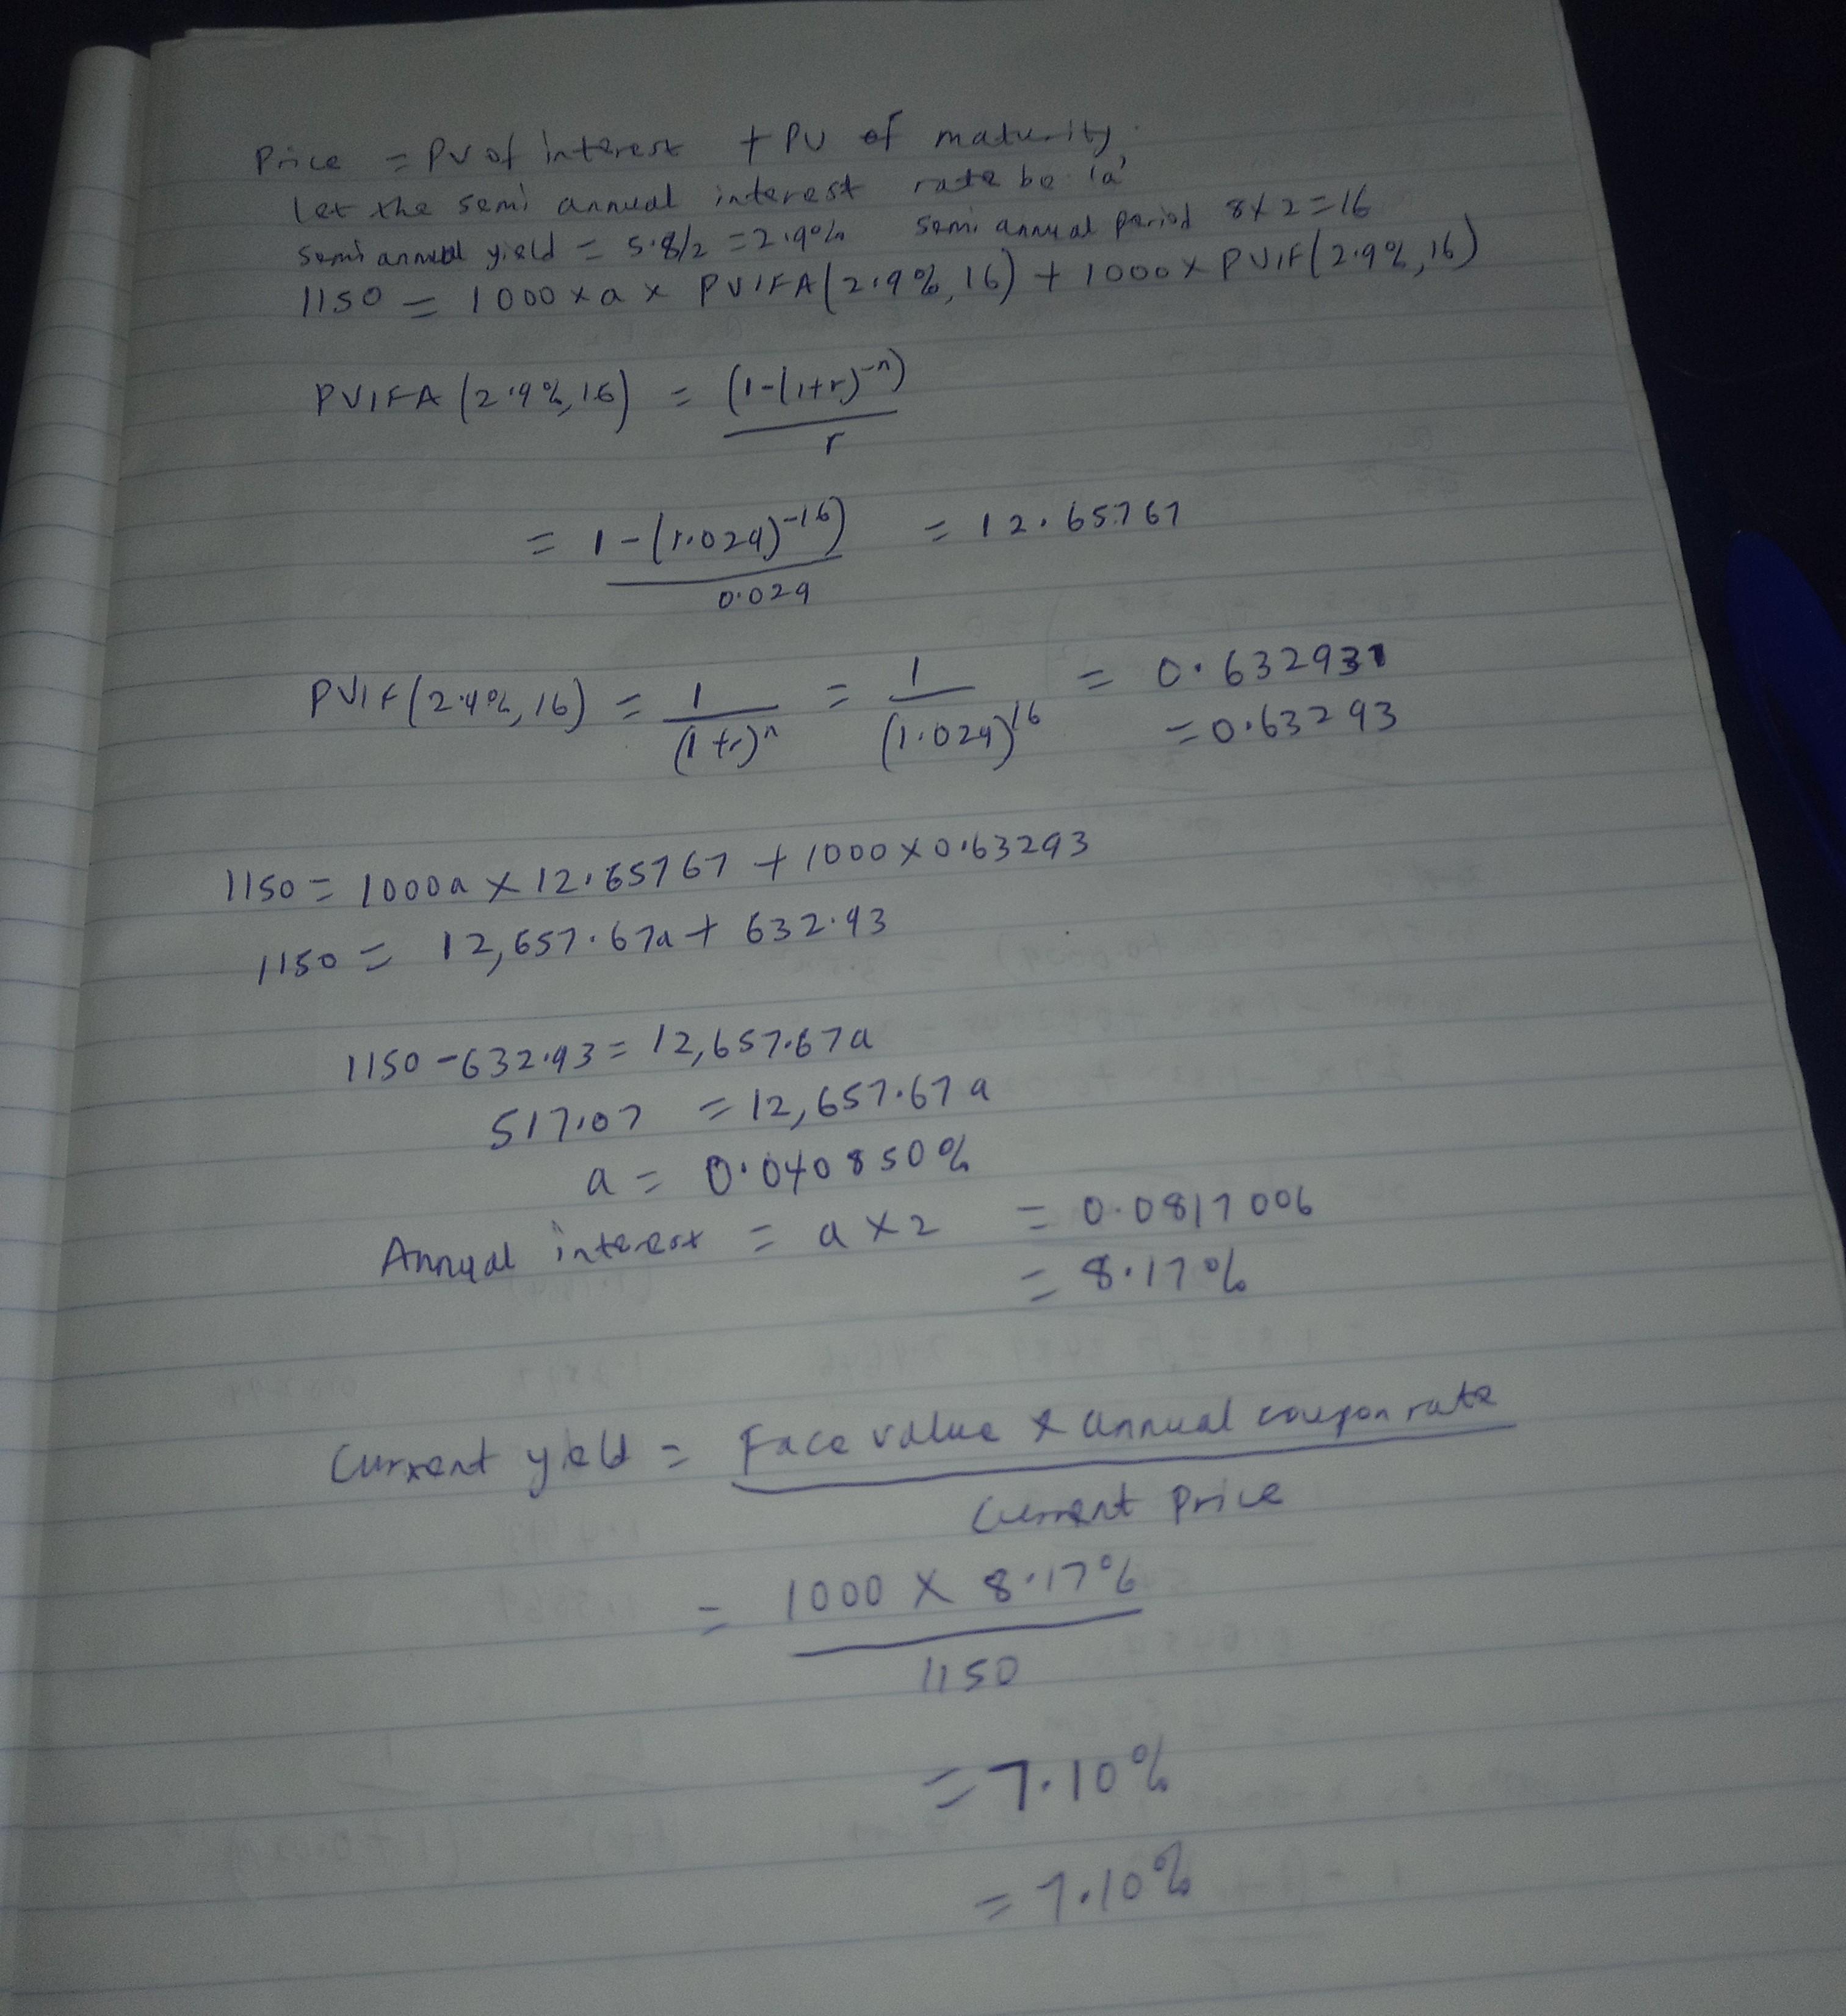 Price = PV of interest + PV of maturity.
Let the semi annual interest rate be 'a'
Semi annual yield = 5.8/2 = 2.9% Semi annual period 8x2=16
1150 = 1000 x a x PVIFA(2.9%,16) + 1000 x PVIF(2.9%,16)
PVIFA(2.9%,16) = (1-(1+r)^-n)
r
= 1-(1.029)^-16) = 12.65767
0.029
PVIF(2.9%,16) = 1 = 1 = 0.632931
(1+r)^n (1.029)^16 = 0.63293
1150 = 1000a x 12.65767 + 1000 x 0.63293
1150 = 12,657.67a + 632.93
1150 - 632.93 = 12,657.67a
517.07 = 12,657.67a
a = 0.040850%
Annual interest = a x 2 = 0.0817006
= 8.17%
Current yield = Face value x annual coupon rate
Current price
= 1000 x 8.17%
1150
= 7.10%
= 7.10%